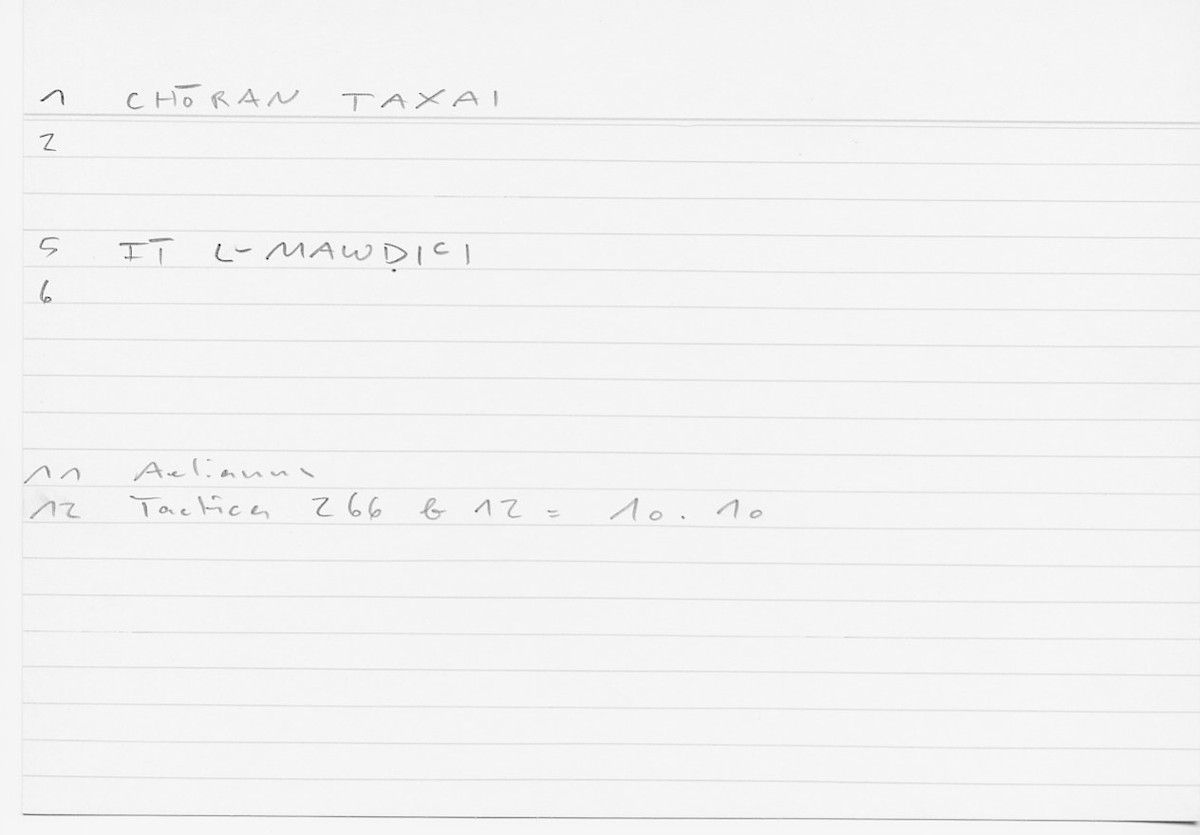 1 CHŌRAN TAXAI
2
5 IT L-MAWḌICI
6
11 Aelianus
12 Tactica 266 b 12 = 10. 10